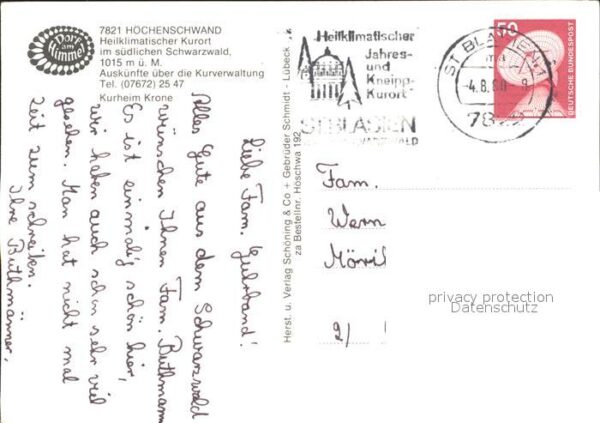 Dorf am
Himmel
7821 HÖCHENSCHWAND
Heilklimatischer Kurort
im südlichen Schwarzwald,
1015 m ü. M.
Auskünfte über die Kurverwaltung
Tel. (07672) 25 47
Kurheim Krone
Liebe Fam. Gehrband!
Alles Gute aus dem Schwarzwald
wünschen Ihnen Fam. Buthmann
Es ist einmalig schön hier,
wir haben auch schon sehr viel
gesehen. Man hat nicht mal
Zeit zum schreiben.
Ihre Buthmänner,
Herst. u. Verlag Schöning & Co + Gebrüder Schmidt - Lübeck
za Bestellnr. Höschwa 192
Heilklimatischer
Jahres-
und
Kneipp-
Kurort
ST. BLASIEN
ST BLASIEN 1
-4.8.80
50
DEUTSCHE BUNDESPOST
Fam.
Wern
Mörri
2/
privacy protection
Datenschutz